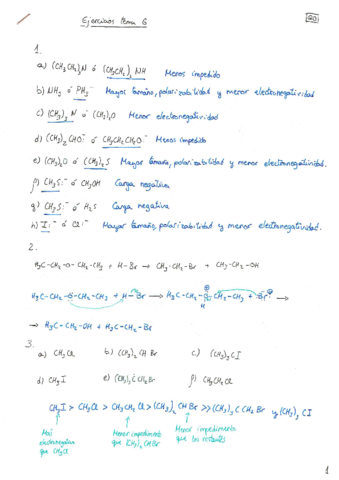 Ejercicios tema 6
1.
a) (CH3CH2)3N ó (CH3CH2)2 NH Menos impedido
b) NH3 ó PH3 Mayor tamaño, polarizabilidad y menor electronegatividad
c) (CH3)3 N ó (CH3)2O Menor electronegatividad
d) (CH3)2CHO:⁻ ó CH3CH2CH2O:⁻ Menos impedido
e) (CH3)2O ó (CH3)2S Mayor tamaño, polarizabilidad y menor electronegatividad.
f) CH3S:⁻ ó CH3OH Carga negativa
g) CH3S:⁻ ó H2S Carga negativa
h) I:⁻ ó Cl:⁻ Mayor tamaño, polarizabilidad y menor electronegatividad.
2.
H3C-CH2-O-CH2-CH3 + H-Br → CH3-CH2-Br + CH3-CH2-OH
H3C-CH2-O-CH2-CH3 + H-Br → H3C-CH2-O-CH2-CH3 + Br →
H
→ H3C-CH2-OH + H3C-CH2-Br
3.
a) CH3Cl b) (CH3)2CH Br c) (CH3)3CI
d) CH3I e) (CH3)3C CH2Br f) CH3CH2Cl
CH3I > CH3Cl > CH3CH2Cl > (CH3)2 CH Br >> (CH3)3 C CH2 Br y (CH3)3 CI
electronegativo
que CH3Cl
Menor impedimento
que (CH3)2CH Br
Menor impedimento
que los restantes
1